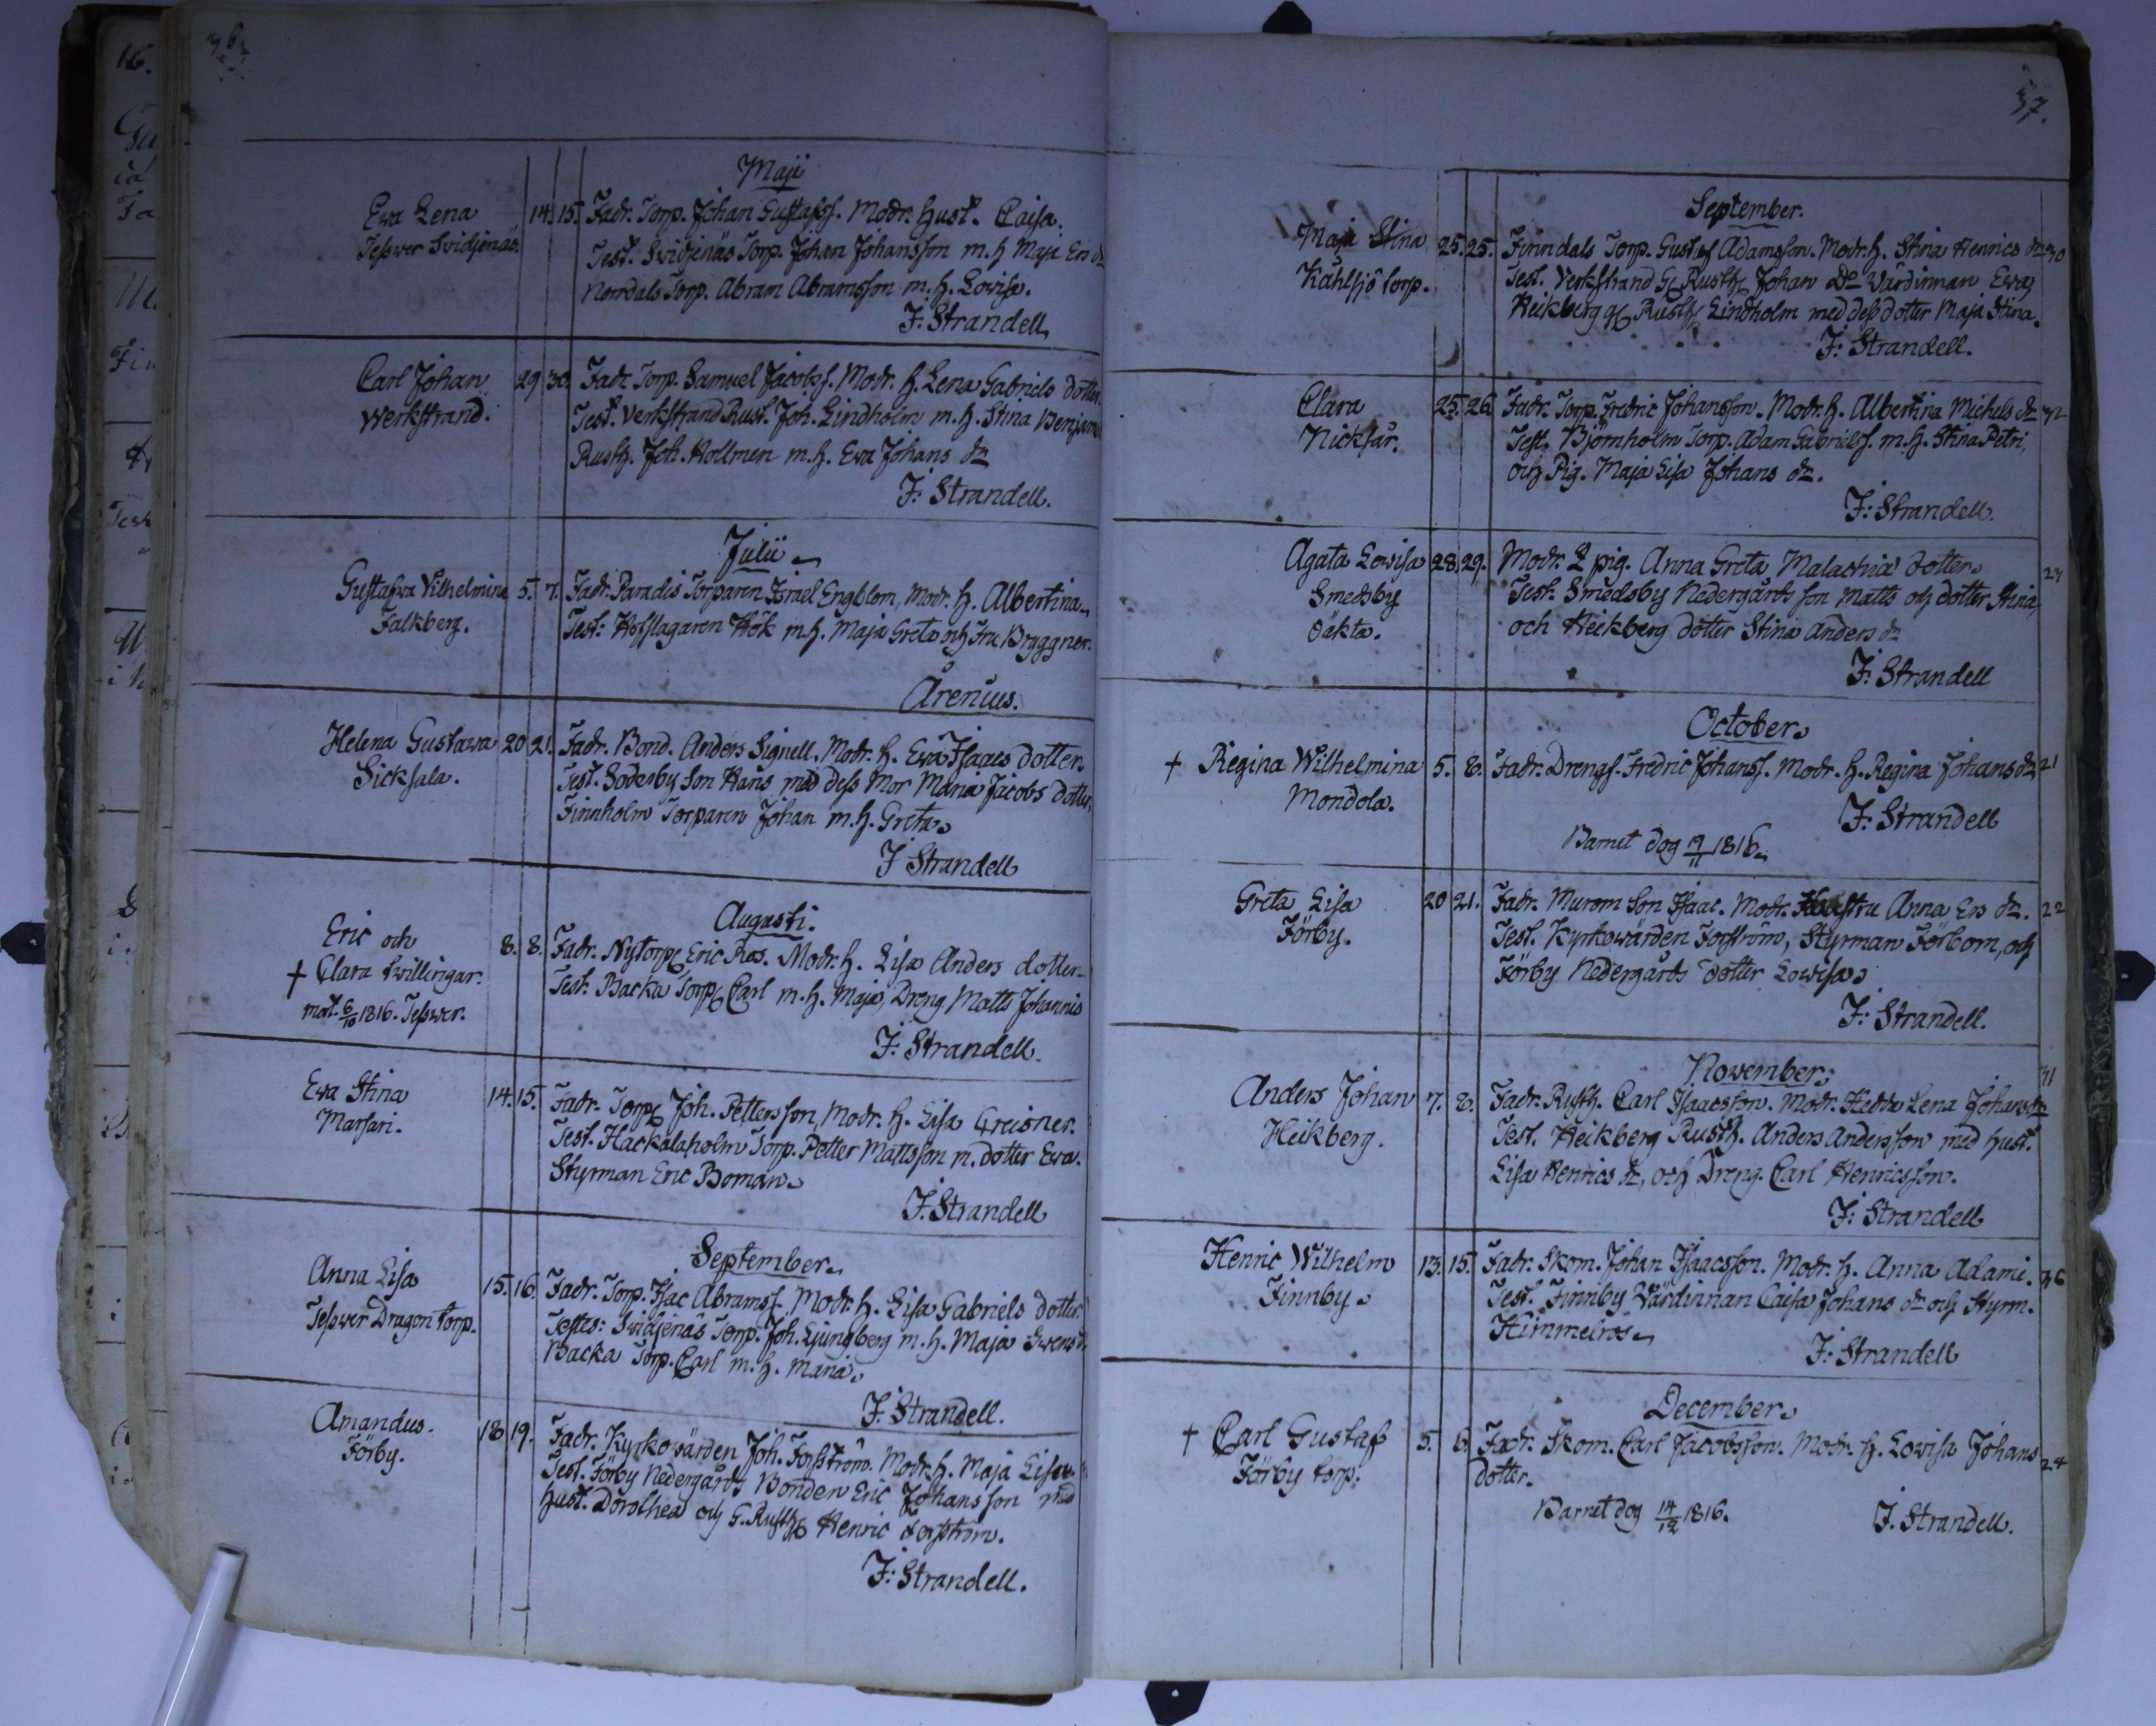 36.
Maji
Ewa Lena 14. 15. Fadr. Torp. Johan Gustafss. Modr. Hust. Caisa.
Tesswer Svidjenäs. Test. Svidjenäs Torp. Johan Johansson m. h. Maja Ers dr
Norrdals Torp. Abram Abramsson m. h. Lovisa.
F: Strandell
Carl Johan 29 30. Fadr. Torp. Samuel Jacobss. Modr. h. Lena Gabriels dotter.
Werkstrand. Test. Verkstrand Rust. Joh. Lindholm m. h. Stina Benjam
Rusth. Joh. Hollmen m. h. Eva Johans dr
F: Strandell.
Julii
Gustafva Vilhelmina 5. 7. Fadr. Paradis Torparen Israel Engblom, Modr. h. Albertina
Falkberg. Test: Hofslagaren Hök m. h. Maja Greta och Fru Bryggner.
Arenius.
Helena Gustawa 20 21. Fadr. Bond. Anders Signell, Modr. h. Ewa Isaacs dotter.
Sicksala. Test. Söderby Son Hans med dess Mor Maria Jacobs dotter,
Finnholm Torparen Johan m. h. Greta.
F Strandell
Augusti.
Eric och 8. 8. Fadr. Nytorp Eric Ros. Modr. h. Lisa Anders dotter.
† Clara twillingar. Test. Backa Torp Carl m. h. Maja, Dreng Matts Johannis
mort. 6/10 1816. Tesswer.
F: Strandell.
Ewa Stina 14. 15. Fadr. Torp Joh. Pettersson, Modr. h. Lisa Greisner.
Marsari. Test. Hackalaholm Torp. Petter Mattsson m. dotter Ewa.
Styrman Eric Boman.
F. Strandell
September.
Anna Lisa 15. 16. Fadr. Torp. Isac Abramss. Modr. h. Lisa Gabriels dotter.
Tesswer Dragontorp. Testes: Svidjenäs Torp. Joh. Ljungberg m. h. Maja Svens d
Backa Torp. Carl m. h. Maria.
F. Strandell.
Amandus. 18 19. Fadr. Kyrkowärden Joh. Forsström. Modr. h. Maja Lisa
Förby. Test. Förby Nedergårds Bonden Eric Johansson med
Hust. Dorothea och G. Rusth Henric Forsström.
F: Strandell.
37.
September.
Maja Stina 25. 25. Finndals Torp. Gustaf Adamsson. Modr. h. Stina Henrics dr 30
Kåhlsjö torp. Test. Verkstrand G Rusth Johan Do Värdinnan Ewa,
Heikberg g Rusth Lindholm med dess dotter Maja Stina.
F: Strandell.
Clara 25. 26 Fadr. Torp. Fredric Johansson. Modr. h. Albertina Michels dr 32
Nicksår. Test. Björnholm Torp. Adam Gabrielss. m. h. Stina Petri,
och Pig. Maja Lisa Johans dr.
F: Strandell.
Agata Lowisa 28 29. Modr. L pig. Anna Greta Malachiæ dotter. 27
Smedsby Test. Smedsby Nedergårds son Matts och dotter Stina,
oäkta. och Heikberg dotter Stina Anders dr
F: Strandell
October.
† Regina Wilhelmina 5. 8. Fadr. Drengs. Fredric Johanss. Modr. h. Regina Johans dr 21
Mondola. F: Strandell
Barnet dog 19/11 1816.
Greta Lisa 20 21. Fadr. Murom Son Isaac. Modr. Hustru Anna Ers dr. 22
Förby. Test. Kyrkowärden Forsström, Styrman Förbom, och
Förby Nedergårds dotter Lowisa.
F: Strandell.
November.
Anders Johan 7. 8. Fadr. Rusth. Carl Isaacsson. Modr. Hedda Lena Johans dr 31
Heikberg. Test. Heikberg Rusth. Anders Andersson med Hust.
Lisa Henrics dr, och Dreng. Carl Henricsson.
F: Strandell
Henric Wilhelm 13. 15. Fadr. Skom. Johan Isaacsson. Modr. h. Anna Adami. 36
Finnby. Test. Finnby Värdinnan Caisa Johans dr och Styrm.
Himmelros
F: Strandell
December.
† Carl Gustaf 5. 6. Fadr. Skom. Carl Jacobsson. Modr. h. Lowisa Johans 24
Förby torp. dotter.
Barnet dog 14/12 1816. F. Strandell.